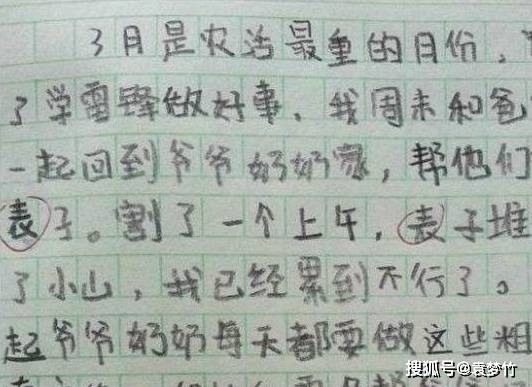 3月是农活最重的月份，
了学雷锋做好事，我周末和爸
一起回到爷爷奶奶家，帮他们
表子。割了一个上午，表子堆
了小山，我已经累到不行了。
起爷爷奶奶每天都要做这些粗
搜狐号@袁梦竹